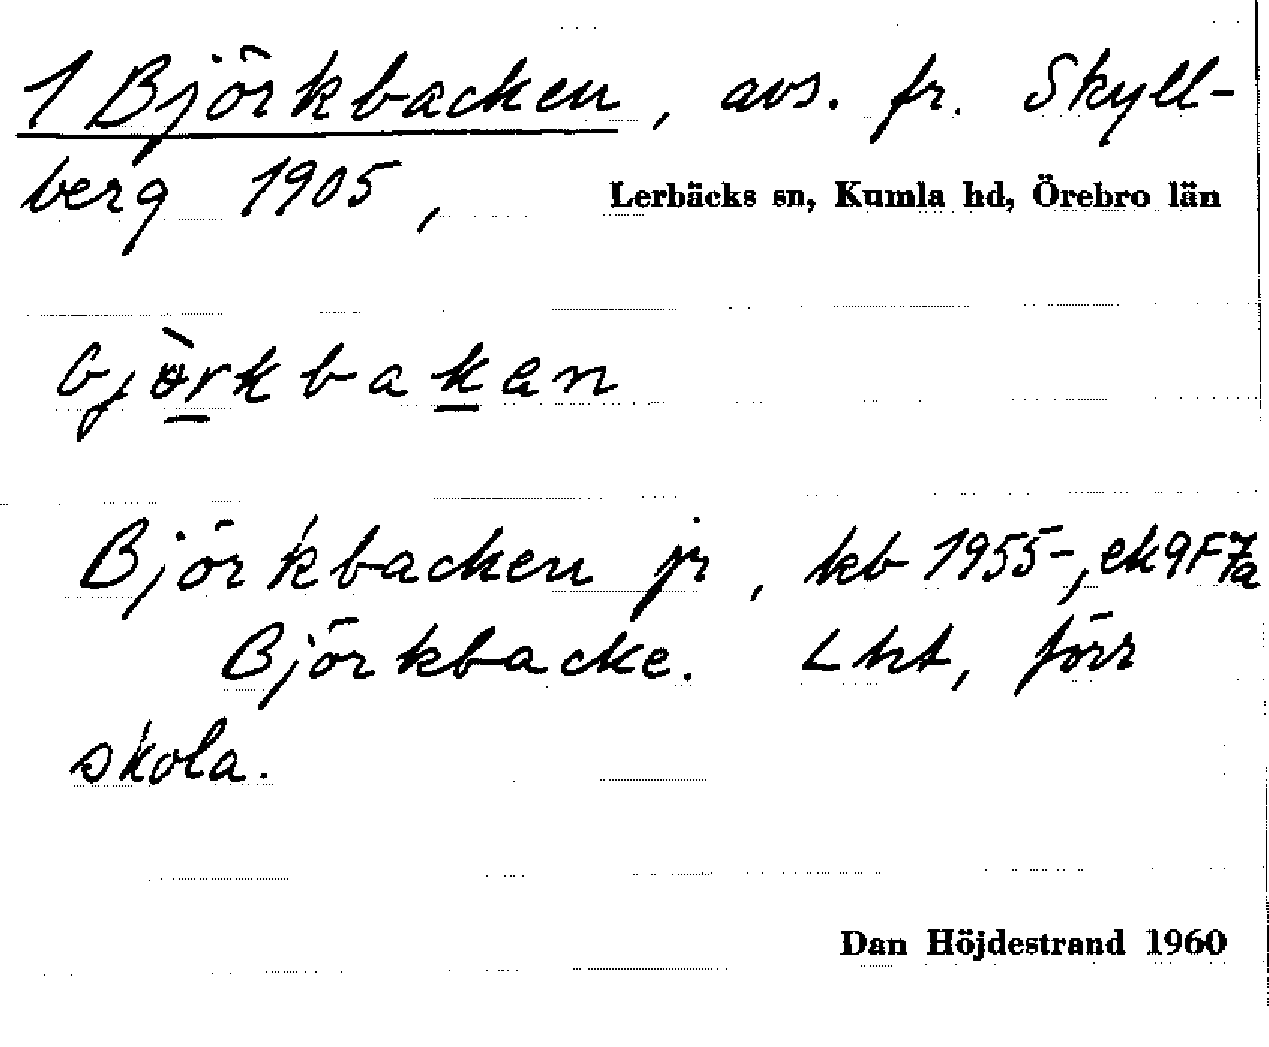 1 Björkbacken, avs. fr. Skyll-
berg 1905, Lerbäcks sn, Kumla hd, Örebro län
bjɵ̀rkbakan
Björkbacken jr, kb 1955-, ek 9F7a
Björkbacke. Lht, förr
skola.
Dan Höjdestrand 1960